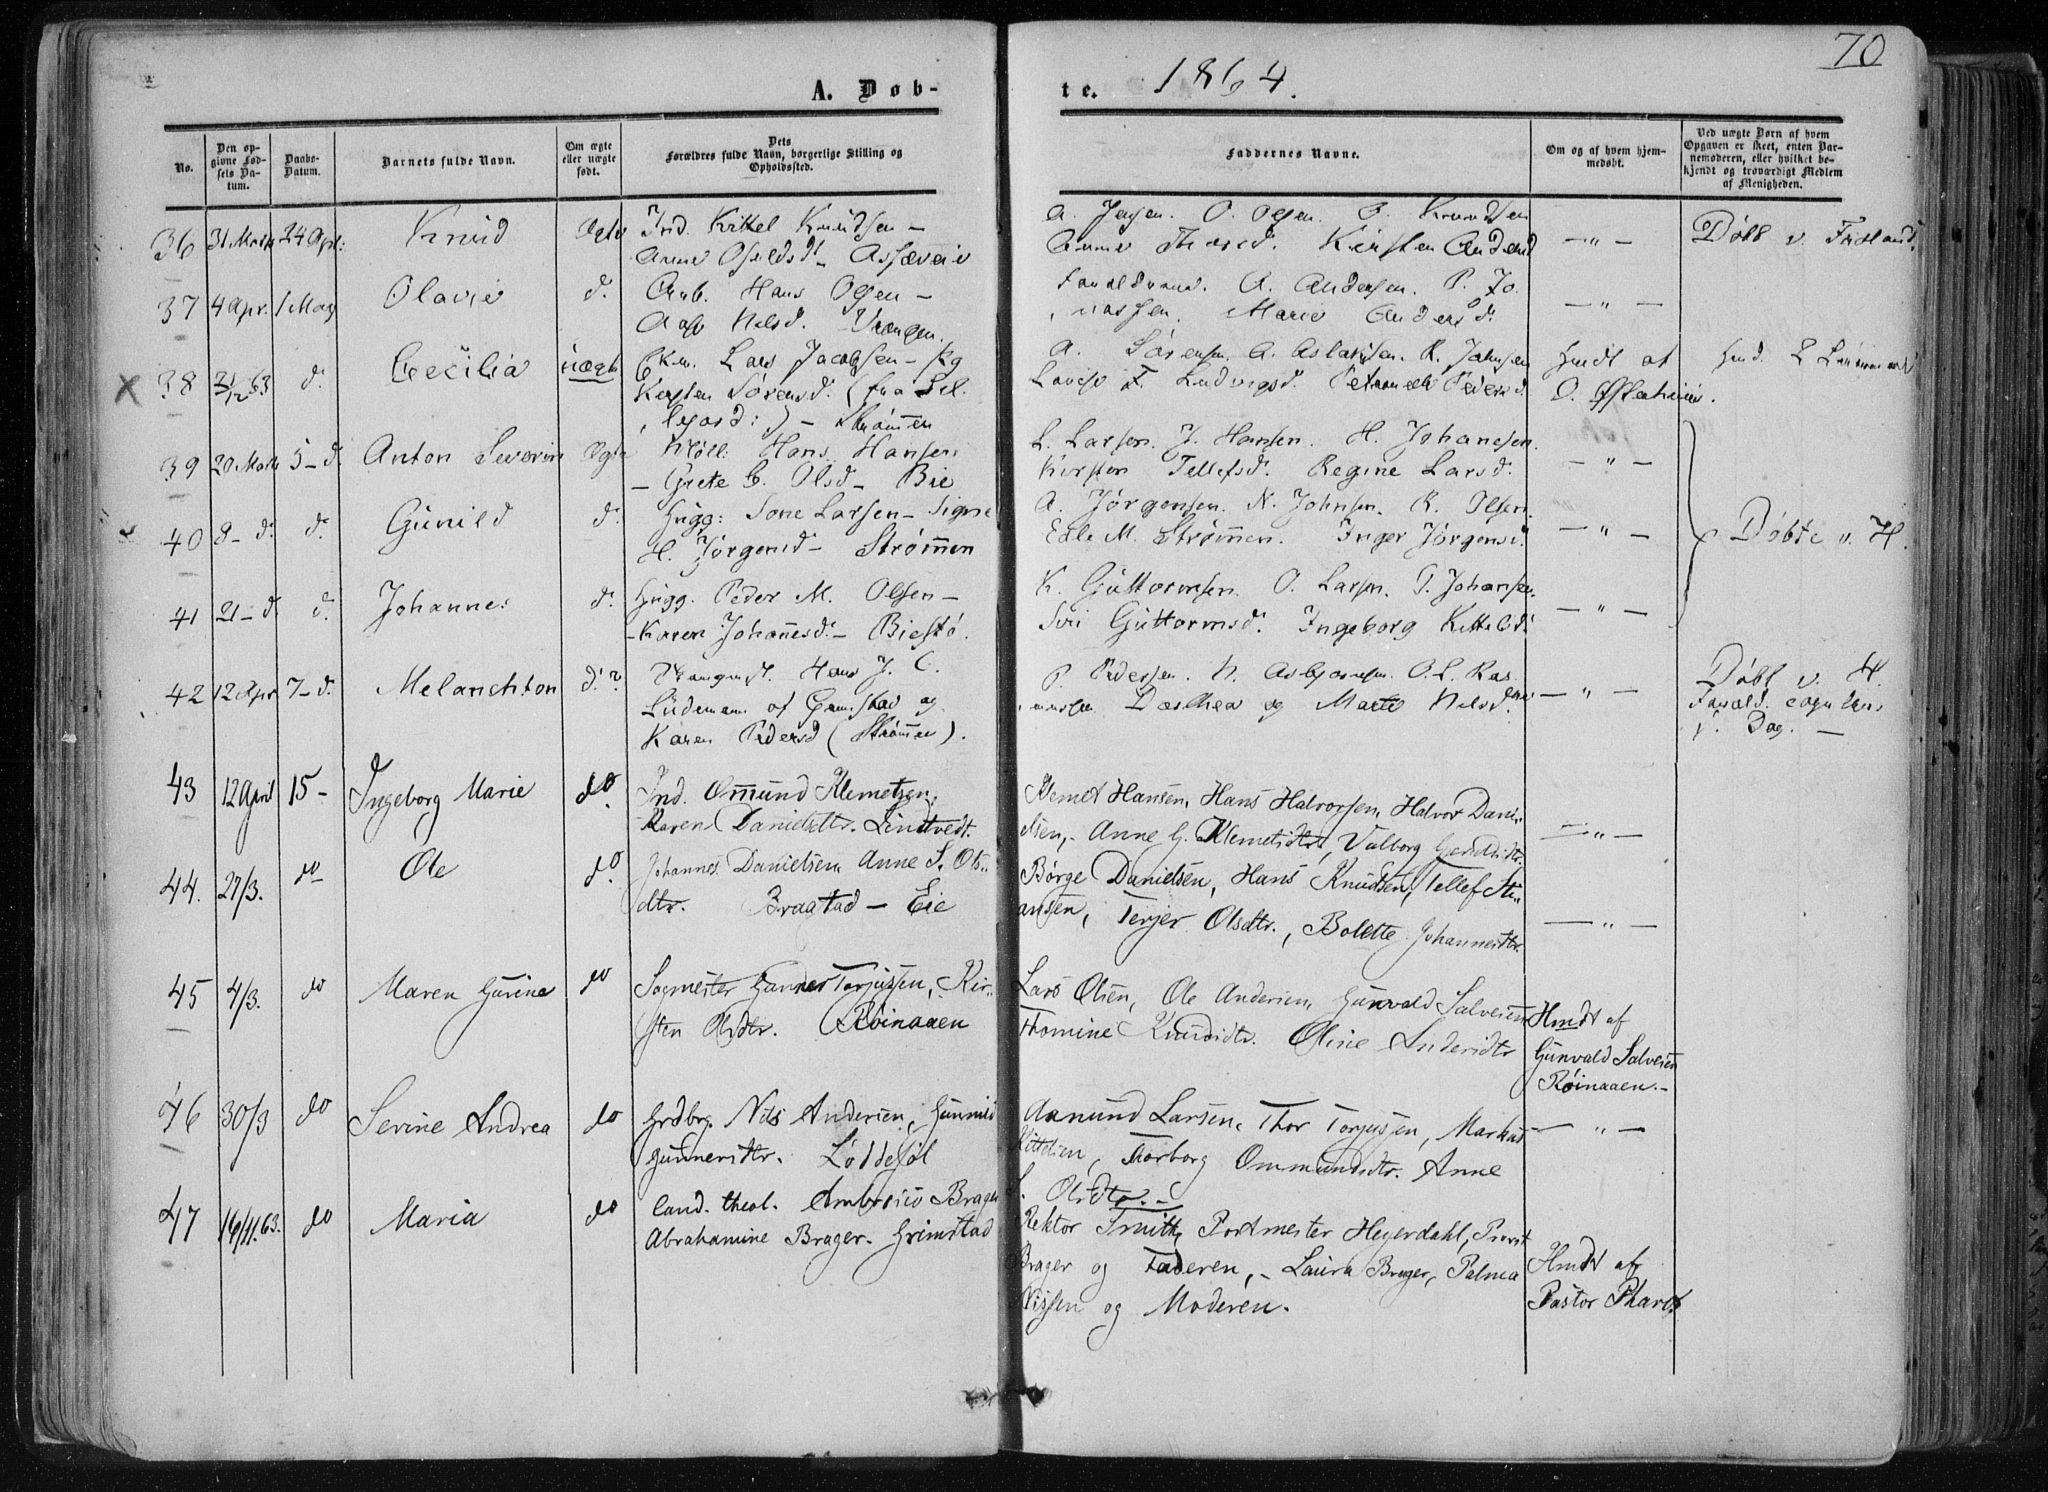 70
A. Døb-
te. 1864.
No.
Den op-
givne Fød-
sels Da-
tum.
Daabs-
Datum.
Barnets fulde Navn.
Om ægte
eller uægte
født.
Dets
Forældres fulde Navn, borgerlige Stilling og
Opholdssted.
Faddernes Navne.
Om og af hvem hjem-
medøbt.
Ved uægte Børn af hvem
Opgaven er skeet, enten Bar-
nemoderen, eller hvilket be-
kjendt og troværdigt Medlem
af Menigheden.
36 31 Marts 24 Apr: Knud Ægte Ind. Kittel Knudsen -
Anne
A. Jensen. O. Olsen. Knudsen
Anne Kirsten Andersd
— " —
Døbt v. Frolands
37 4 Apr. 1 May Olavie d. Arb. Hans Olsen -
Aase Nelsd. Vrængen.
A. Andersen. P. Jo
nassen. Marie Andersd.
— " —
X 38 31/12 63 d. Cecilia uægte Lars Jacobsen - Pg
Kirsten Sørensd. (fra
) - Strømmen
A. Sørensen. A. Aslaksen. R. Johnsen
Lovise F. Ludvigsd. Petronelle Pedersd.
Hmdt af
O.
39 20 Marts 5 - d. Anton Severin Ægte Møll: Hans Hansen
- Grete C. Olsd - Bie
L. Larsen. J. Hansen. H. Johansen.
Kirsten Tellefsd. Regine Larsd.
— " —
40 8 - d. d. Gunild d. Hugg: Sone Larsen - Signe
H. Jørgensd - Strømmen
A. Jørgensen. N. Johnsen. K. Olsen.
Edle M. Strømmen. Inger Jørgensd.
— " —
Døbte v. H.
41 21 - d. d. Johannes d. Hugg. Peder M. Olsen -
- Karen Johannesd - Biestø.
K. Guttormsen. O. Larsen. T. Johansen.
Siri Guttormsd. Ingeborg Kittelsd.
— " —
42 12 Apr 7 - d. Melanchton d. ? Hans J. C.
Lüdemann af Grimstad og
Karen Pedersd (Strømmen).
P. Pedersen. N. Asbjørnsen. O. L. Ras
mussen Dorthea og Marte Nelsd.
— " —
Døbt v. H.
Foræld.
v. Dag. —
43 12 April 15 - Ingeborg Marie do Ind. Omund Klemetsen,
Karen Danielsdtr. Lindtvedt.
Klemet Hansen, Hans Halvorsen, Halvor Dani-
elsen, - Anne G. Klemetsdtr, Valborg
— " —
44. 27/3. do Ole do. Johannes Danielsen, Anne S. Ols-
dtr. Bragstad - Eie
Børge Danielsen, Hans Knudsen, Tellef Ste-
ansen, Terjer Olsdtr., Bolette Johannesdtr.
— " —
45 4/3. do Maren Gurine do Sagmester Gunner Torjussen, Kir-
sten Olsdtr. Røinaaen
Lars Olsen, Ole Andersen, Gunvald Salvesen
Thomine Knudsdtr. Oline Andersdtr
Hmdt af
Gunvald Salvesen
Røinaaen.-
46 30/3 do Serine Andrea do Grdbrg. Nils Andersen, Gunnild
Gunnersdtr. Løddesøl
Aanund Larsen, Thor Torjussen, Markus
Kittelsen, Thorborg Ommundsdtr. Anne
S. Olsdtr. -
— " —
47 16/11.63. do Maria do Cand. theol. Ambrosius Brager
Abrahamine Brager. Grimstad
Rektor Smith, Postmester Heyerdahl, Provst
Brager og Faderen, - Laura Brager, Palma
Nissen og Moderen.
Hmdt af
Pastor